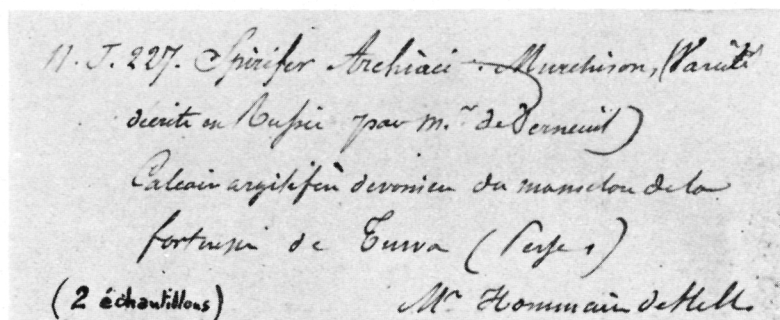 11. J. 227. Spirifer Archiaci. Murchison, (Variété
décrite en Russie par m.r de Verneuil)
Calcaire argilifère devonien du mamelon de la
forteresse de (Perse.)
(2 échantillons) Mr Hommaire de Hell.